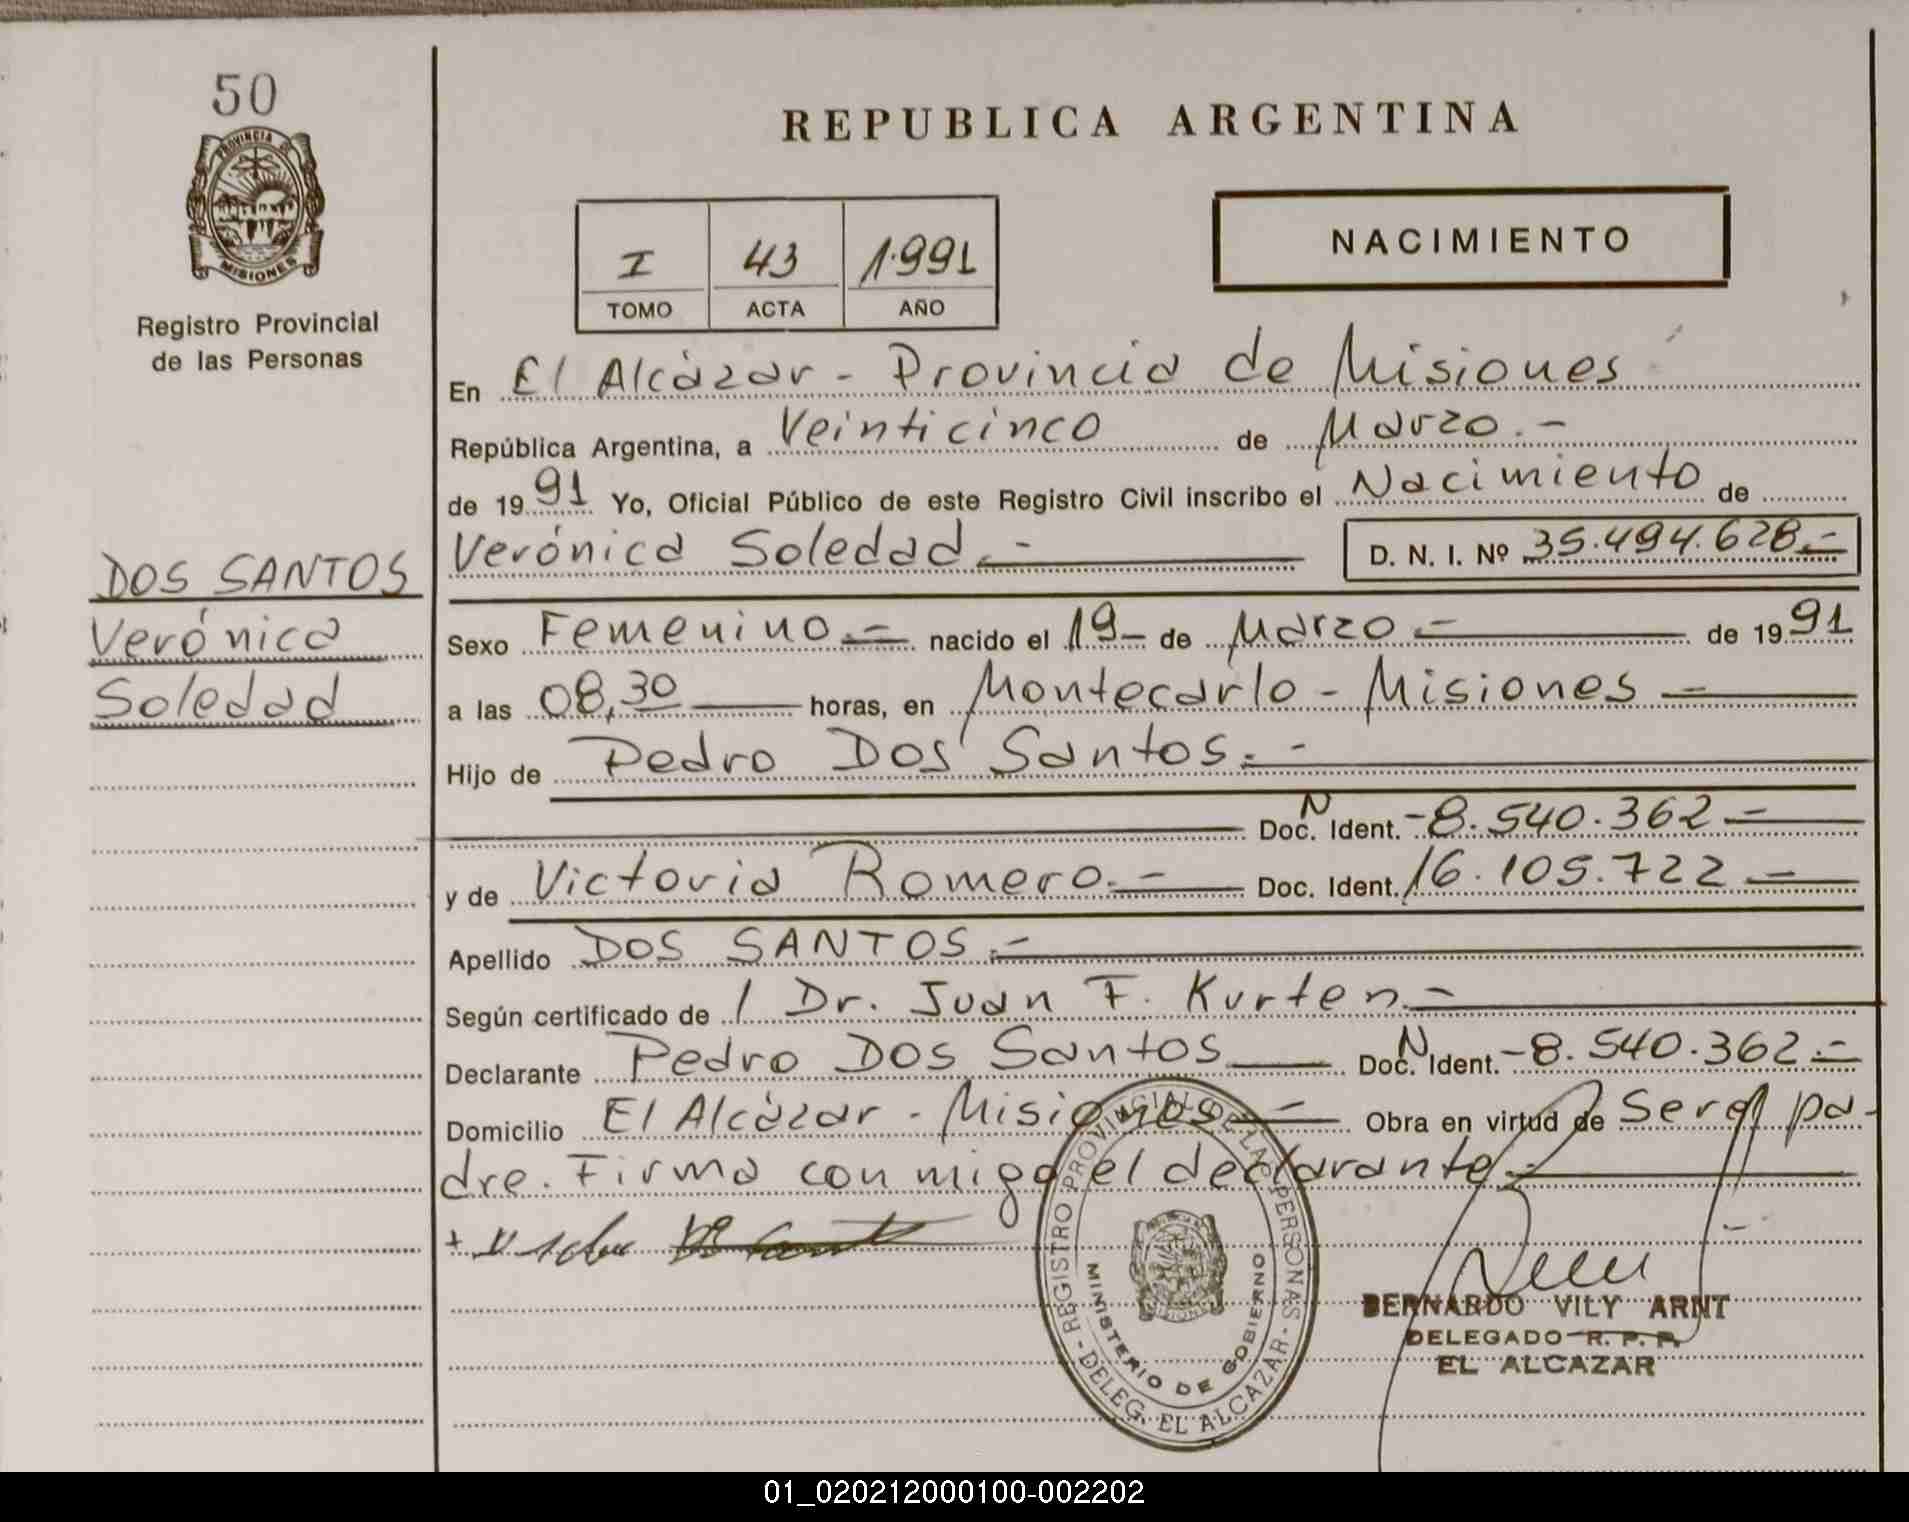 50
PROVINCIA DE
MISIONES
Registro Provincial
de las Personas
DOS SANTOS
Verónica
Soledad
REPUBLICA ARGENTINA
I 43 1.991
TOMO ACTA AÑO
NACIMIENTO
En El Alcázar - Provincia de Misiones
República Argentina, a Veinticinco de Marzo.-
de 1991 Yo, Oficial Público de este Registro Civil inscribo el Nacimiento de
Verónica Soledad.- D. N. I. Nº 35.494.628.-
Sexo Femenino.- nacido el 19- de Marzo - de 1991
a las 08,30 horas, en Montecarlo - Misiones -
Hijo de Pedro Dos Santos.-
N
Doc. Ident. -8.540.362.-
y de Victoria Romero.- Doc. Ident. 16.105.722.-
Apellido DOS SANTOS.-
Según certificado de / Dr. Juan F. Kurten.-
Declarante Pedro Dos Santos Doc. N Ident. -8.540.362.-
Domicilio El Alcázar - Misiones - Obra en virtud de Ser el pa-
dre. Firma conmigo el declarante.-
REGISTRO PROVINCIAL DE LAS PERSONAS - DELEG. EL ALCAZAR -
MINISTERIO DE GOBIERNO
BERNARDO VILY ARNT
DELEGADO R. P. P.
EL ALCAZAR
01_020212000100-002202